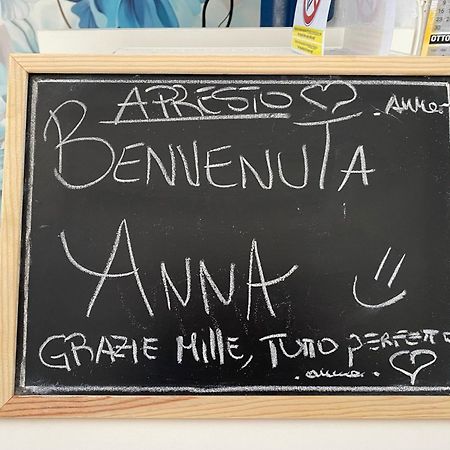 OTTO
A PRESTO ♡ .Anna.
BENVENUTA
ANNA
GRAZIE MILLE, TUTTO PERFETTO
.anna. ♡